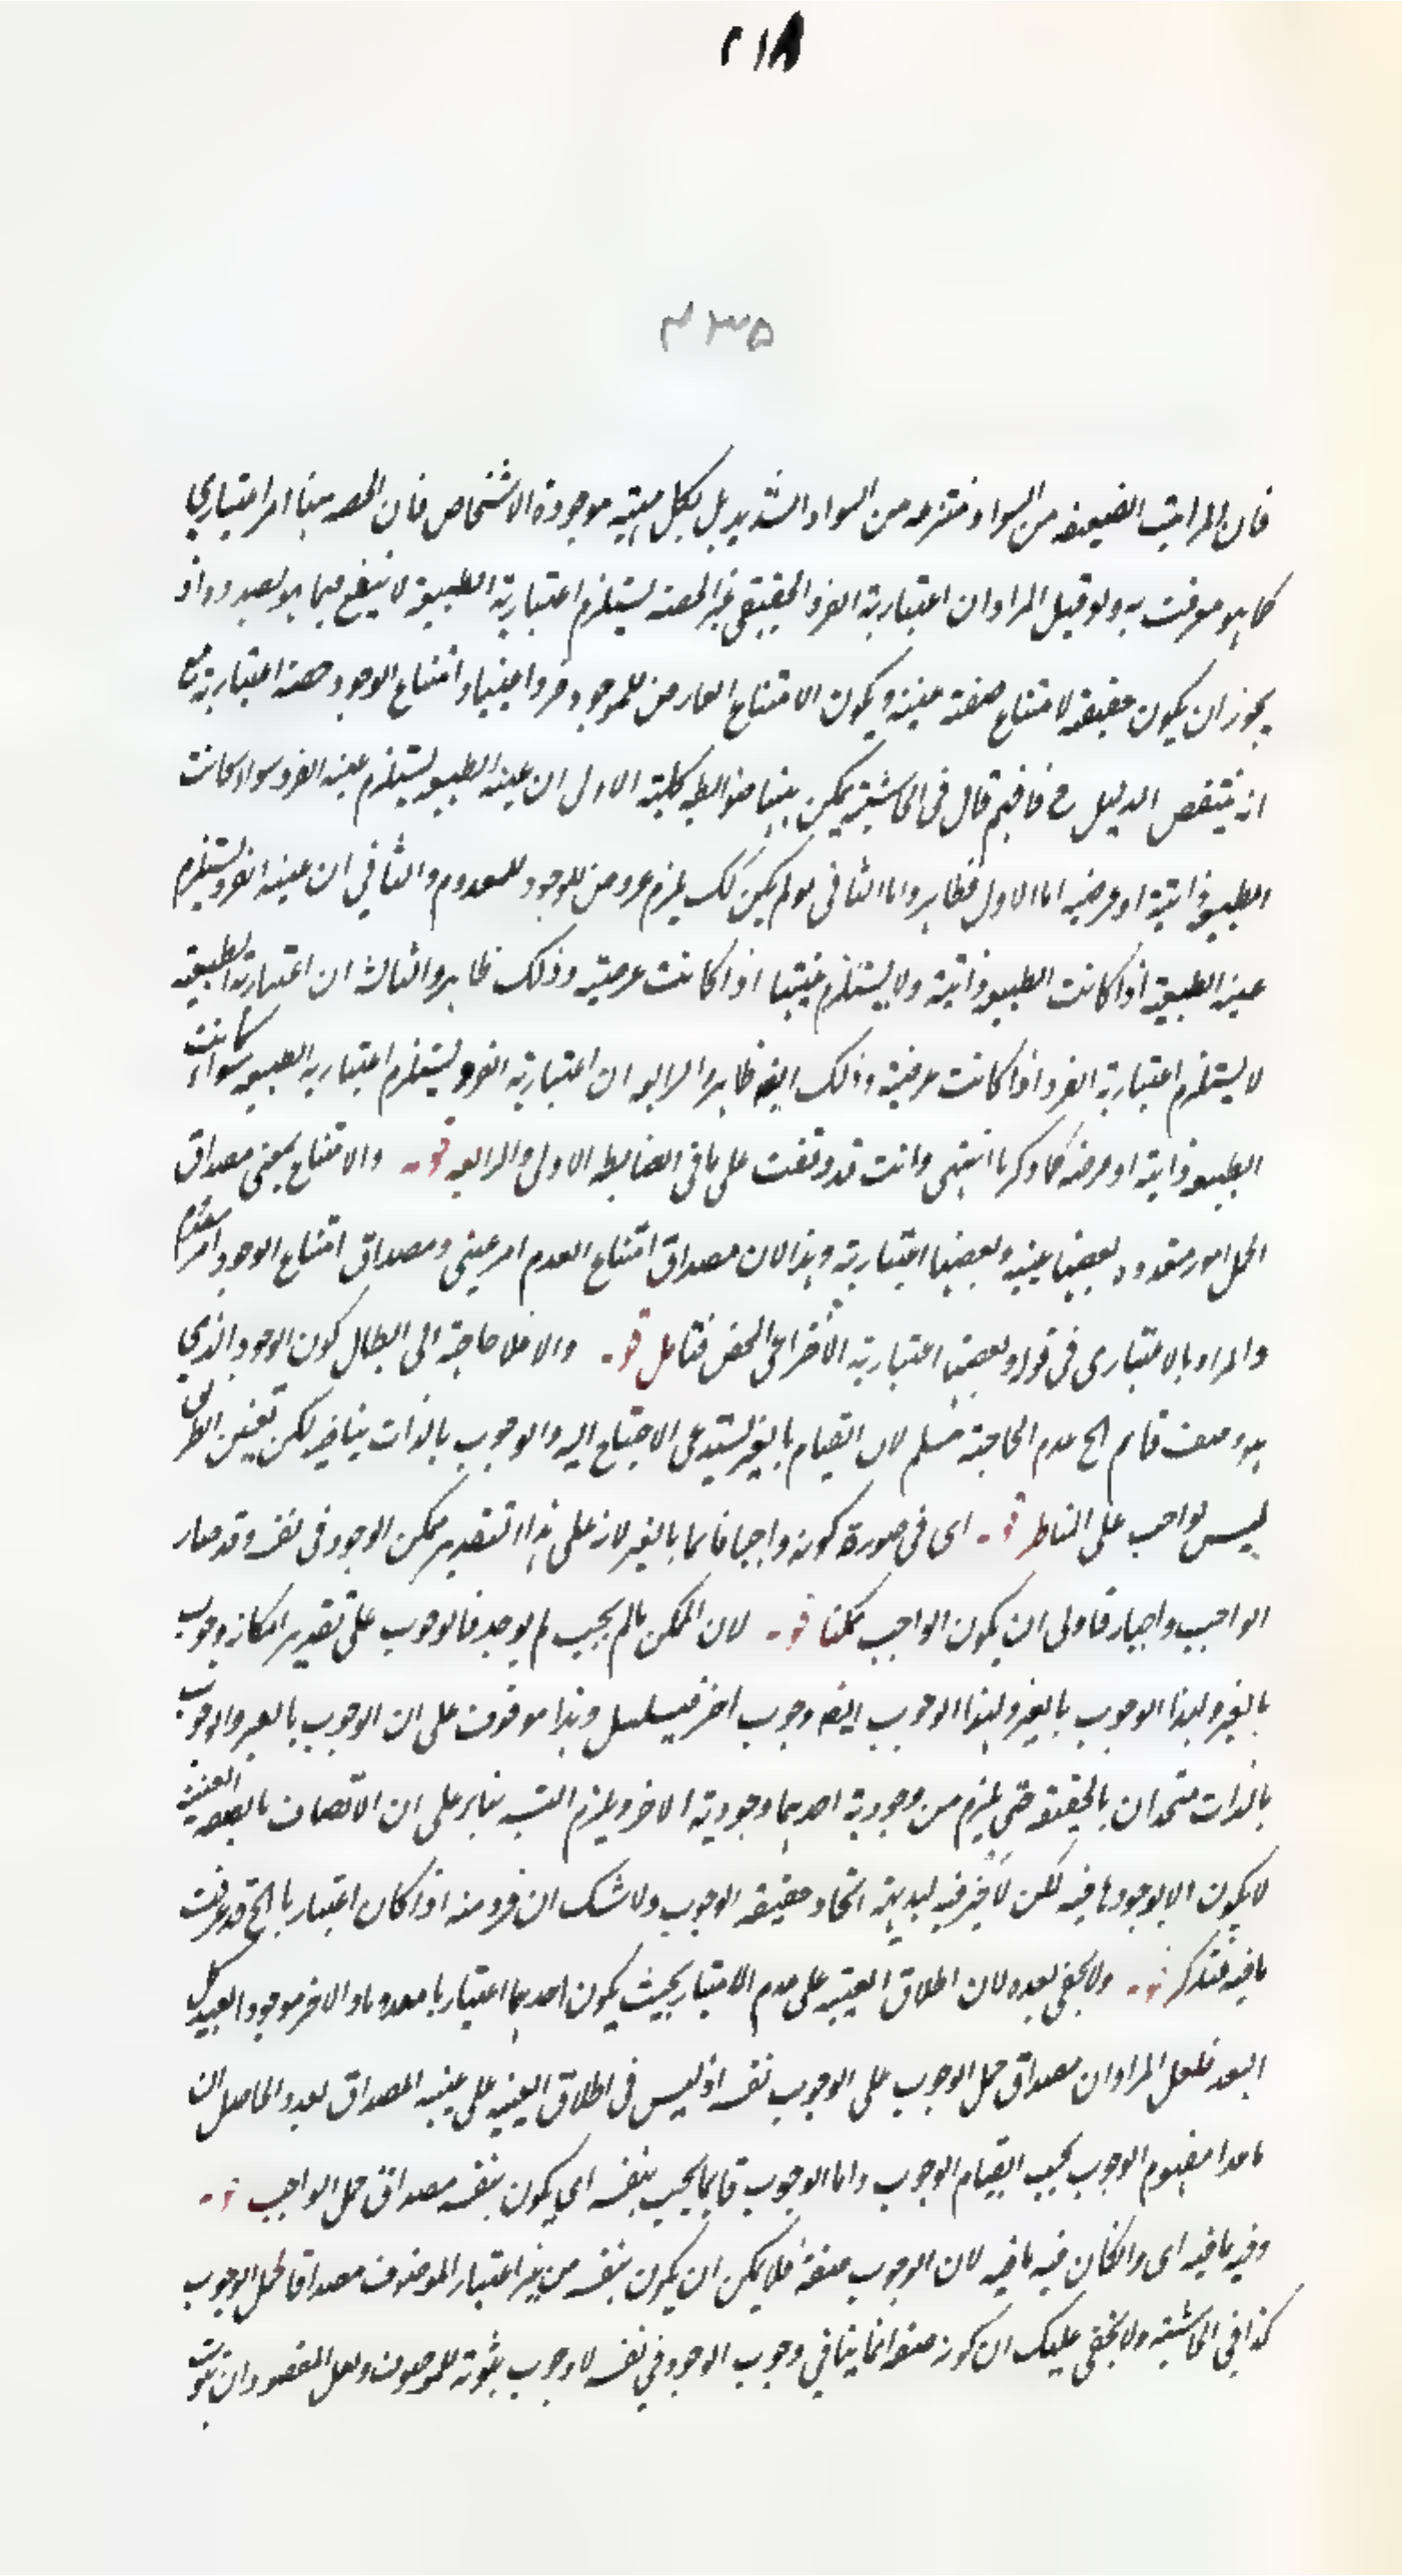 ٢١٨
٤٣٥
فان المراتب الضعيفه من السواد منتزعه من السواد الشديد بل بكل مهيته موجودة الاشخاص فان الحصه منها امر اعتباري
كما هو معرفت به ولو قيل المراد ان اعتبارية الفرد الحقيقى غير الحصه يستلزم اعتبارية الطبيعة لا ينفع فيما هو بصدده اذ
يجوز ان يكون حقيقة الامتناع صفة عينيه ويكون الامتناع العارض للموجود فردا عينيا وامتناع الوجود حصه اعتبارية مع
انه ينتقض الدليل ح فافهم قال فى الحاشية يمكن ههنا ضوابط كلية الاول ان عينية الطبيعه يستلزم عينيه الفرد سواء كانت
الطبيعه ذاتية او عرضيه اما الاول فظاهر واما الثانى فلو لم يكن كك يلزم عروض الموجود للمعدوم والثاني ان عينيه الفرد يستلزم
عينيه الطبيعة اذا كانت الطبيعه ذاتية ولا يستلزم عينيتها اذا كانت عرضية وذلك ظاهر والثالث ان اعتبارية الطبيعة
لا يستلزم اعتبارية الفرد اذا كانت عرضية وذلك ايضا ظاهر الرابع ان اعتبارية الفرد يستلزم اعتباريه الطبيعه سواء كانت
الطبيعه ذاتية او عرضيه كما ذكرنا انتهى وانت قد وقفت على ما فى الضابط الاول والرابع قوله والامتناع بمعنى مصداق
الحمل امور متعدده بعضها عينيه وبعضها اعتبارية وهذا لان مصداق امتناع العدم امر عينى ومصداق امتناع الوجود امر معدوم
والمراد بالاعتبارى فى قوله وبعضها اعتبارية الاختراعى المحض فتامل قوله والا فلا حاجة الى ابطال كون الوجود الذي
هو وصف قايم الخ عدم الحاجة مسلم لان القيام بالغير يستدعى الاحتياج اليه والوجوب بالذات ينافيه لكن تعيين الطريق
ليس بواجب على الناظر قوله اى فى صورة كونه واجبا قايما بالغير لانه على هذا التقدير ممكن الوجود فى نفسه وقد صار
الواجب واجبا به فاولى ان يكون الواجب ممكنا قوله لان الممكن ما لم يجب لم يوجد فالوجوب على تقدير امكانه وجوب
بالغير ولهذا الوجوب بالغير ولهذا الوجوب ايضا وجوب اخر فيسلسل وهذا موقوف على ان الوجوب بالغير والوجوب
بالذات متحدان بالحقيقة حتى يلزم من وجودية احدهما وجودية الاخر ويلزم التس بناء على ان الاتصاف بالصفه العينية
لا يكون الا بوجودها فيه لكن لا خير فيه لبديهة اتحاد حقيقه الوجوب ولا شك ان فرد منه اذا كان اعتباريا الخ قد عرفت
ما فيه فتذكر قوله ولا يخفى بعده لان اطلاق العينية على عدم الامتياز بحيث يكون احدهما اعتباريا معدوما والاخر موجودا بعيد كل
البعد فلعل المراد ان مصداق حمل الوجوب على الوجوب نفسه اذ ليس فى اطلاق العينيه على عينيه المصداق بعد والحاصل ان
ما عدا مفهوم الوجوب يجب بقيام الوجوب واما الوجوب فانما يجب بنفسه اي يكون بنفسه مصداق حمل الواجب قوله
وفيه ما فيه اى وان كان فيه ما فيه لان الوجوب صفة فلا يمكن ان يكون بنفسه من غير اعتبار الموصوف مصداقا لحمل الوجوب
كذا فى الحاشية ولا يخفى عليك ان كونه صفة انما ينافي وجوب الوجود في نفسه لا وجوب ثبوته للموصوف ولعل المقصود ان ثبوت